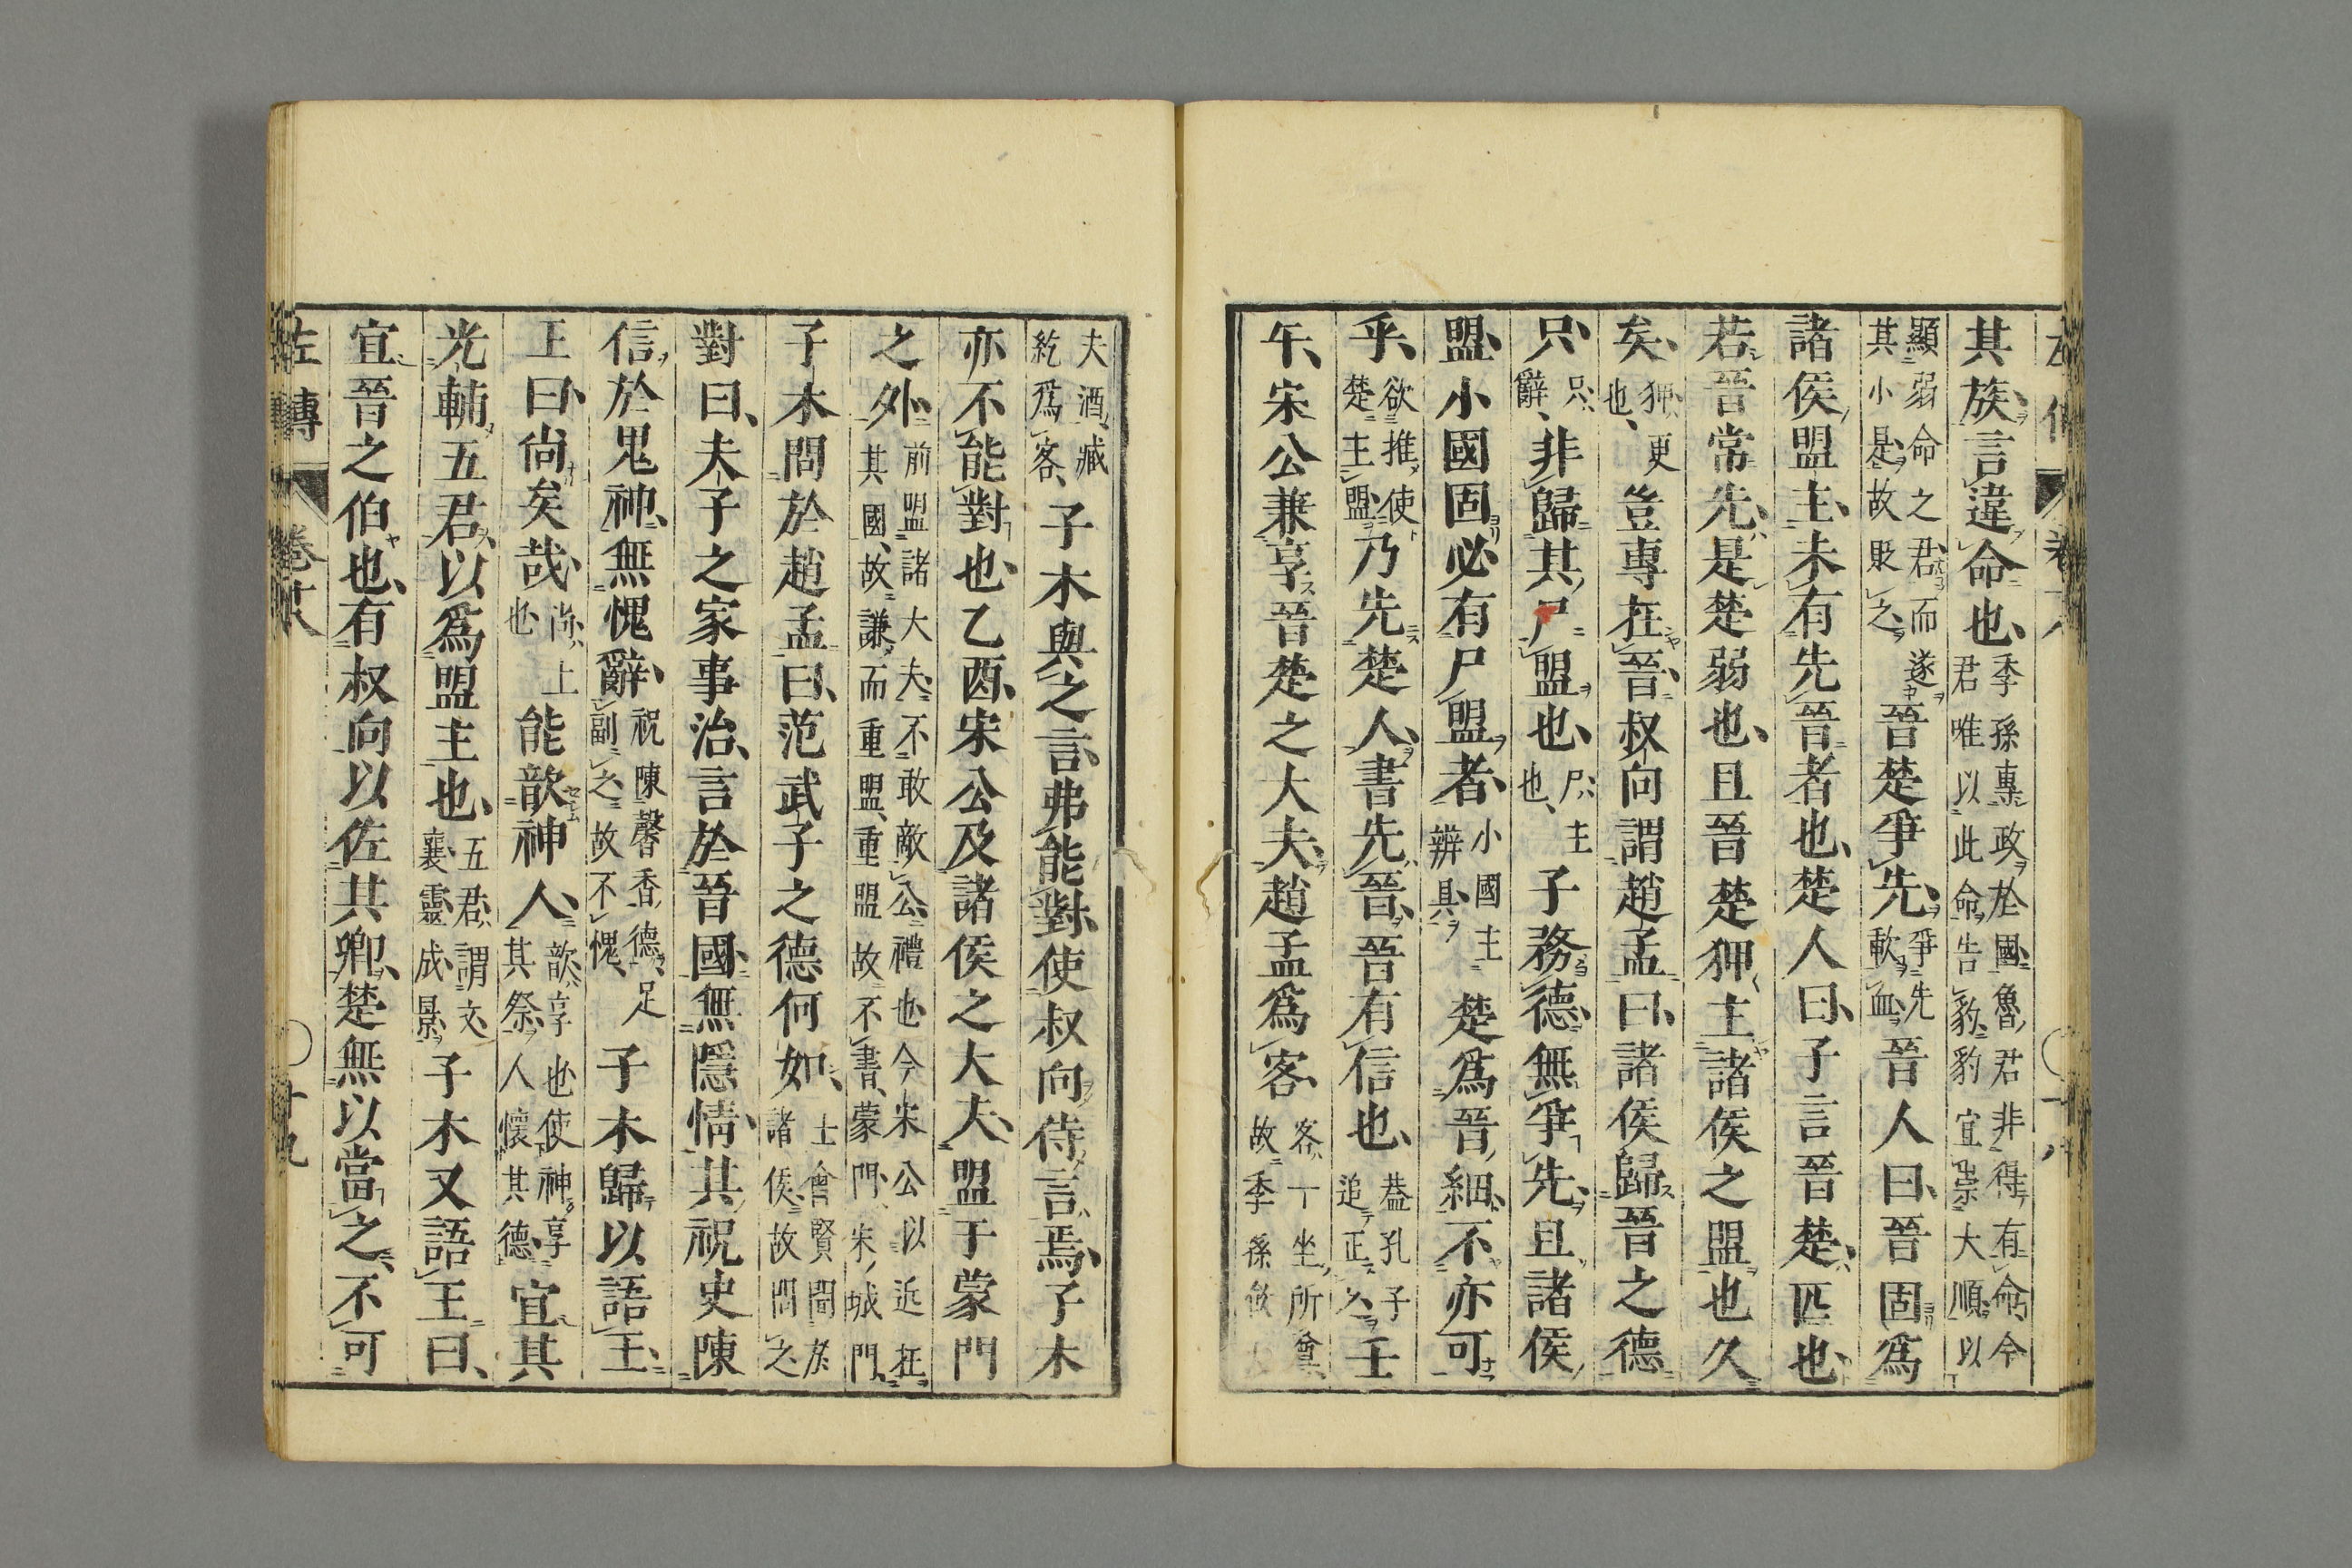 其族言違命也季孫專政於國魯君非得有命今
君唯以此命告豹豹宜崇大順以
顯弱命之君而遂
其小是故貶之晉楚爭先爭先
歃血晉人曰晉固爲
諸侯盟主未有先晉者也楚人曰子言晉楚匹也
若晉常先是楚弱也且晉楚狎主諸侯之盟也久
矣狎更
也豈專在晉叔向謂趙孟曰諸侯歸晉之德
只只
辭非歸其尸盟也尸主
也子務德無爭先且諸侯
盟小國固必有尸盟者小國主
辨具楚爲晉細不亦可
乎欲推使
楚主盟乃先楚人書先晉晉有信也蓋孔子
追正之壬
午宋公兼享晉楚之大夫趙孟爲客客一坐所尊
故季孫飲
夫酒臧
紇爲客子木與之言弗能對使叔向侍言焉子木
亦不能對也乙酉宋公及諸侯之大夫盟于蒙門
之外前盟諸大夫不敢敵公禮也今宋公以近在
其國故謙而重盟重盟故不書蒙門宋城門
子木問於趙孟曰范武子之德何如士會賢聞於
諸侯故問之
對曰夫子之家事治言於晉國無隱情其祝史陳
信於鬼神無愧辭祝陳馨香德足
副之故不愧子木歸以語王
王曰尚矣哉尚上
也能歆神人歆享也使神享
其祭人懷其德宜其
光輔五君以爲盟主也五君謂文
襄靈成景子木又語王曰
宜晉之伯也有叔向以佐其卿楚無以當之不可
左傳 卷十八 〇十九